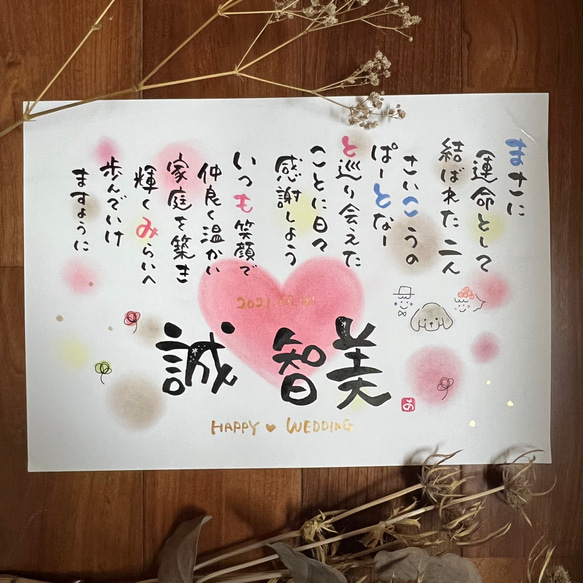 まさに
運命として
結ばれた二人
さいこうの
ぱーとなー
と巡り会えた
ことに日々
感謝しよう
いつも笑顔で
仲良く温かい
家庭を築き
輝くみらいへ
歩んでいけ
ますように
2021
誠 智美
HAPPY ♥ WEDDING